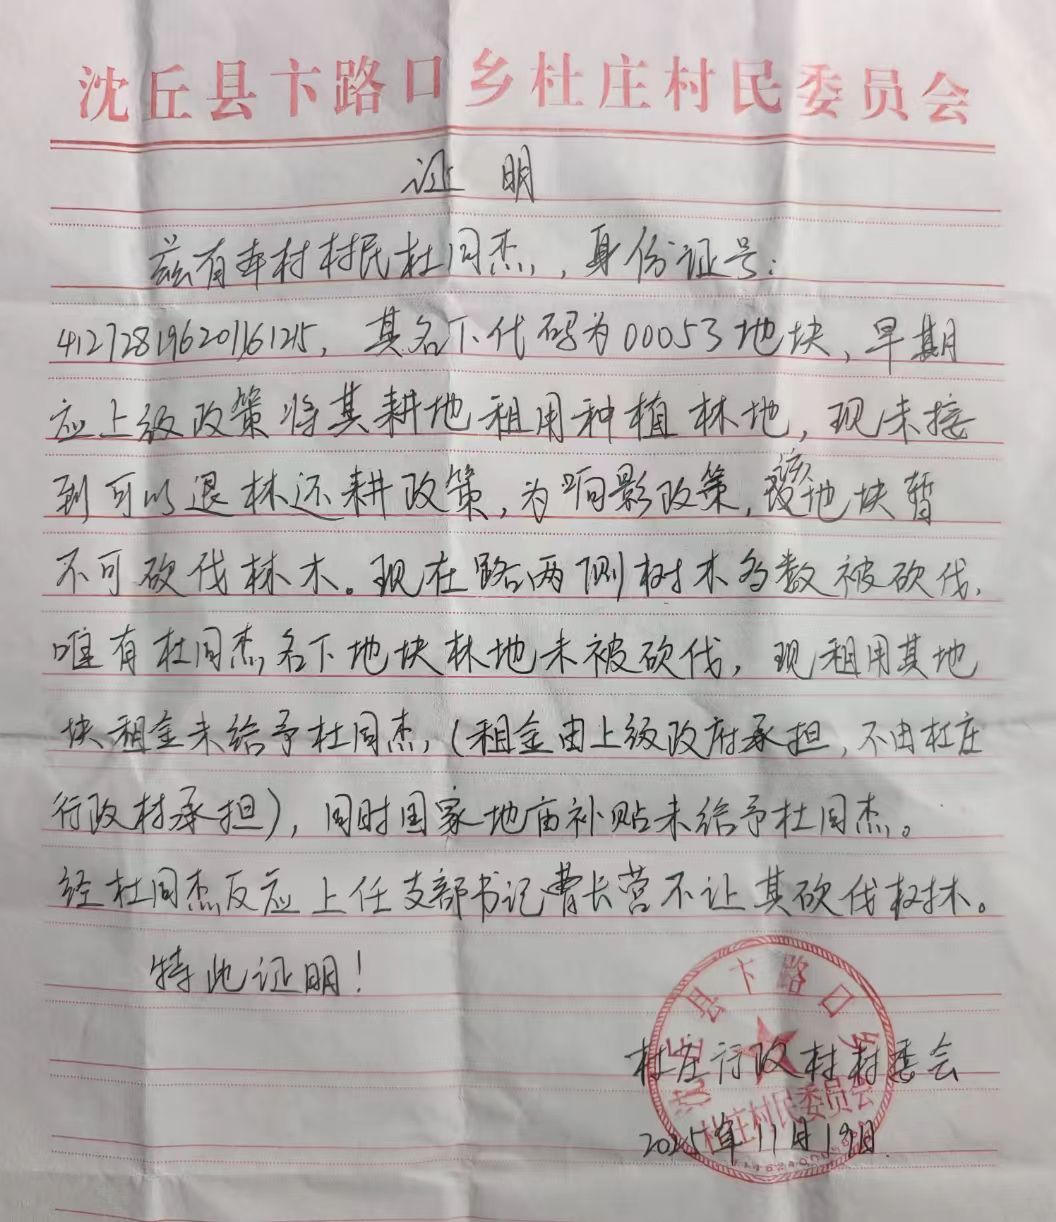 沈丘县卞路口乡杜庄村民委员会
证 明
兹有本村村民杜同杰,身份证号:
其名下代码为00053地块,早期
应上级政策将其耕地租用种植林地,现未接
到可以退林还耕政策,为响影政策,该地块暂
不可砍伐林木。现在路两侧树木多数被砍伐,
唯有杜同杰名下地块林地未被砍伐,现租用其地
块租金未给予杜同杰,(租金由上级政府承担,不由杜庄
行政村承担),同时国家地亩补贴未给予杜同杰。
经杜同杰反应上任支部书记曹长营不让其砍伐树木。
特此证明!
杜庄行政村村委会
2025年11月19日
沈丘县卞路口乡
杜庄村民委员会